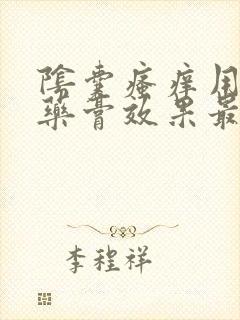 陰囊瘙癢用
藥膏效果最
李程祥